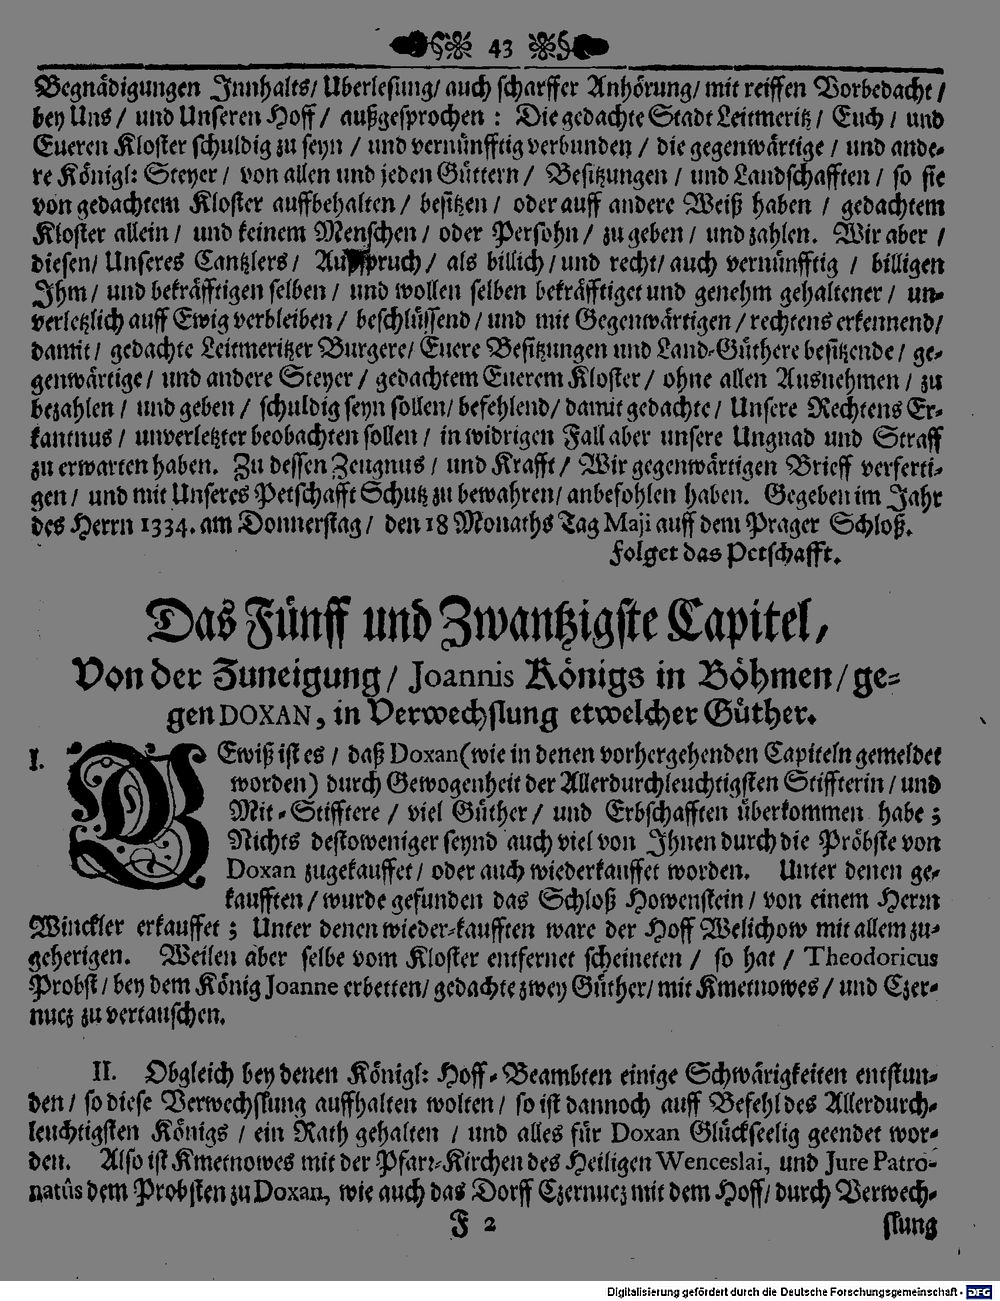 43
Begnädigungen Innhalts/ Uberlesung/ auch scharffer Anhörung/ mit reiffen Vorbedacht/
bey Uns/ und Unseren Hoff/ außgesprochen: Die gedachte Stadt Leitmeritz/ Euch/ und
Eueren Kloster schuldig zu seyn/ und vernünfftig verbunden/ die gegenwärtige/ und ande-
re Königl: Steyer/ von allen und jeden Güttern/ Besitzungen/ und Landschafften/ so sie
von gedachtem Kloster auffbehalten/ besitzen/ oder auff andere Weiß haben/ gedachtem
Kloster allein/ und keinem Menschen/ oder Persohn/ zu geben/ und zahlen. Wir aber/
diesen/ Unseres Cantzlers/ Außspruch/ als billich/ und recht/ auch vernünfftig/ billigen
Ihm/ und bekräfftigen selben/ und wollen selben bekräfftiget und genehm gehaltener/ un-
verletzlich auff Ewig verbleiben/ beschlüssend/ und mit Gegenwärtigen/ rechtens erkennend/
damit/ gedachte Leitmeritzer Burgere/ Euere Besitzungen und Land-Güthere besitzende/ ge-
genwärtige/ und andere Steyer/ gedachtem Euerem Kloster/ ohne allen Ausnehmen/ zu
bezahlen/ und geben/ schuldig seyn sollen/ befehlend/ damit gedachte/ Unsere Rechtens Er-
kantnus/ unverletzter beobachten sollen/ in widrigen Fall aber unsere Ungnad und Straff
zu erwarten haben. Zu dessen Zeugnus/ und Krafft/ Wir gegenwärtigen Brieff verferti-
gen/ und mit Unseres Petschafft Schutz zu bewahren/ anbefohlen haben. Gegeben im Jahr
des Herrn 1334. am Donnerstag/ den 18 Monaths Tag Maji auff dem Prager Schloß.
Folget das Petschafft.
Das Fünff und Zwantzigste Capitel,
Von der Zuneigung/ Joannis Königs in Böhmen/ ge-
gen DOXAN, in Verwechslung etwelcher Güther.
I. GEwiß ist es/ daß Doxan (wie in denen vorhergehenden Capiteln gemeldet
worden) durch Gewogenheit der Allerdurchleuchtigsten Stiffterin/ und
Mit-Stifftere/ viel Güther/ und Erbschafften überkommen habe;
Nichts destoweniger seynd auch viel von Ihnen durch die Pröbste von
Doxan zugekauffet/ oder auch wiederkauffet worden. Unter denen ge-
kaufften/ wurde gefunden das Schloß Howenstein/ von einem Herrn
Winckler erkauffet; Unter denen wieder-kaufften ware der Hoff Welichow mit allem zu-
geherigen. Weilen aber selbe vom Kloster entfernet scheineten/ so hat/ Theodoricus
Probst/ bey dem König Joanne erbetten/ gedachte zwey Güther/ mit Kmetnowes/ und Czer-
nucz zu vertauschen.
II. Obgleich bey denen Königl: Hoff-Beambten einige Schwärigkeiten entstun-
den/ so diese Verwechslung auffhalten wolten/ so ist dannoch auff Befehl des Allerdurch-
leuchtigsten Königs/ ein Rath gehalten/ und alles für Doxan Glückseelig geendet wor-
den. Also ist Kmetnowes mit der Pfarr-Kirchen des Heiligen Wenceslai, und Jure Patro-
natûs dem Probsten zu Doxan, wie auch das Dorff Czernucz mit dem Hoff/ durch Verwech-
F 2 slung
Digitalisierung gefördert durch die Deutsche Forschungsgemeinschaft - DFG